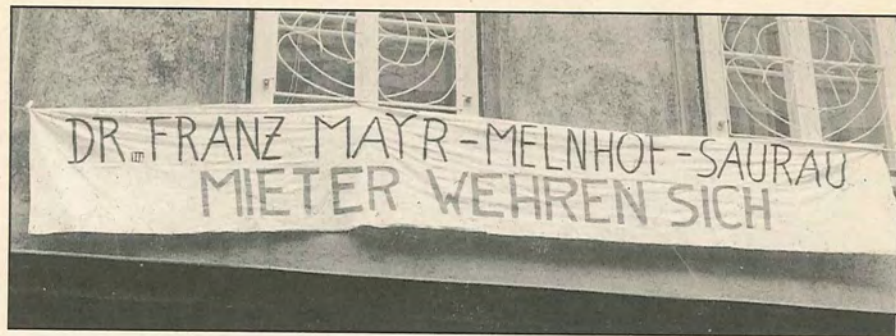 DR. FRANZ MAYR-MELNHOF-SAURAU
MIETER WEHREN SICH